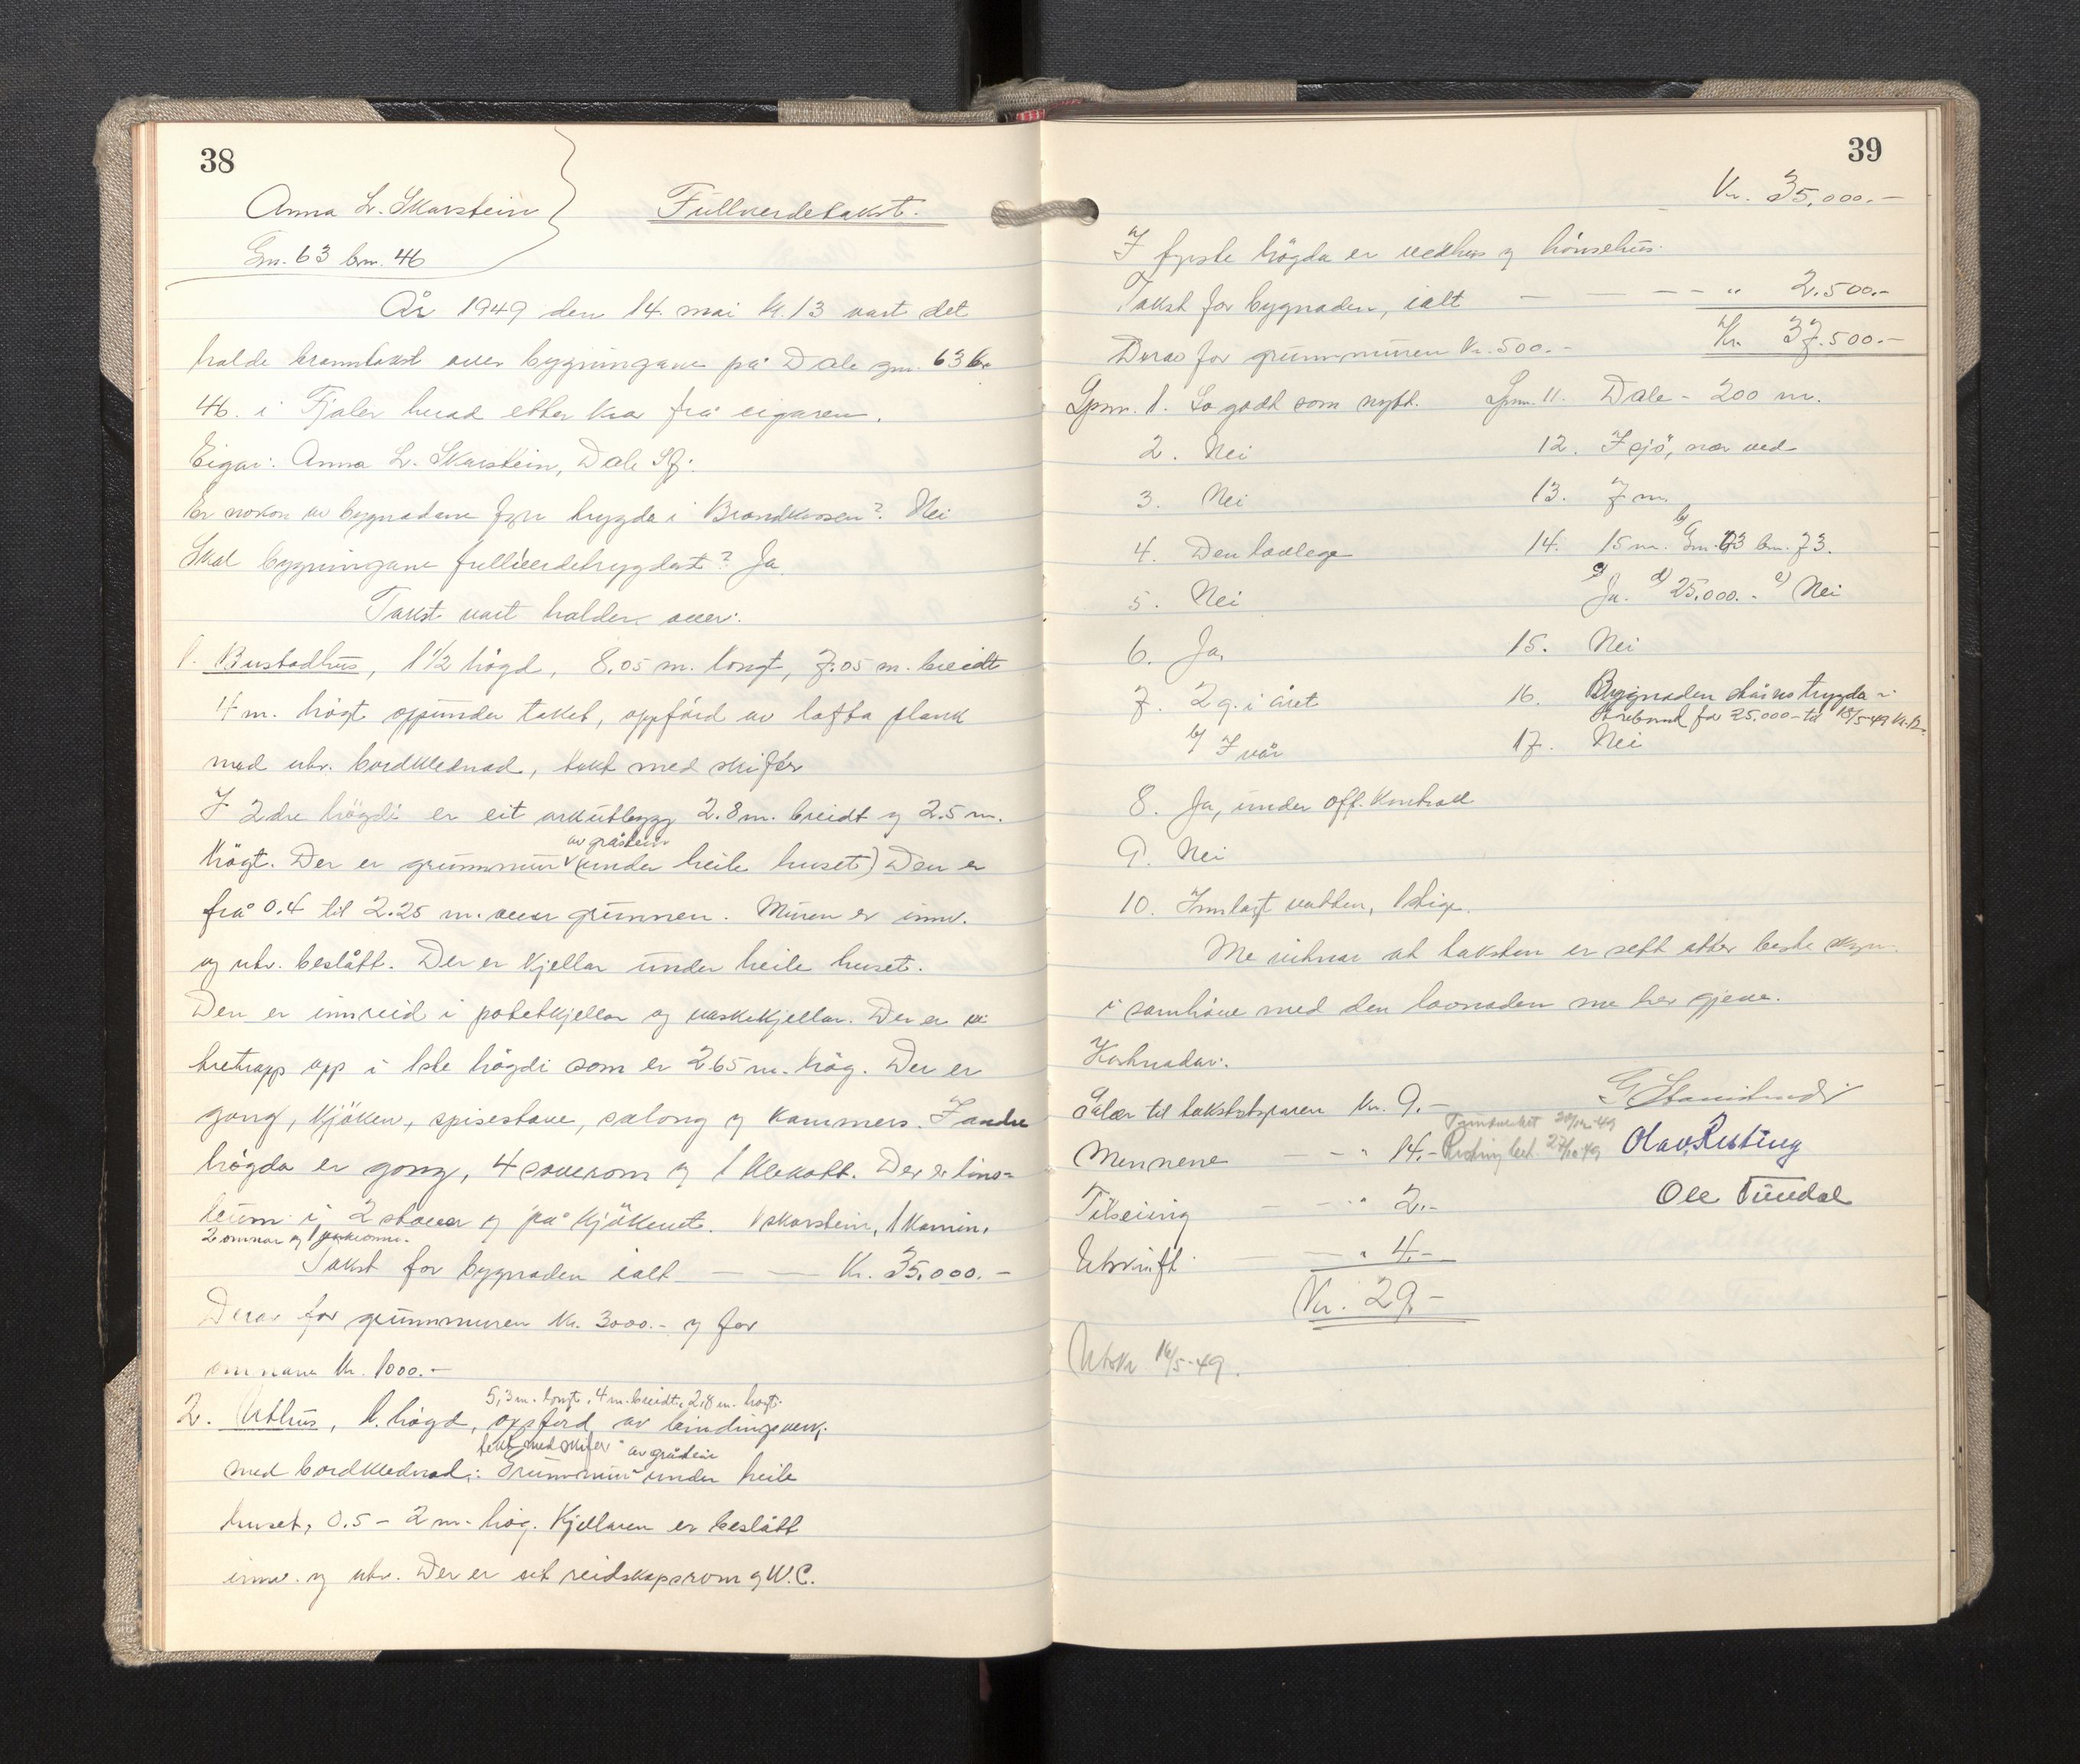 38
Anna L. Skarstein
Fullverdetakst.
Gn. 63 bn. 46
År 1949 den 14. mai kl. 13 vart det
halde branntakst over bygningane på Dale gn. 63 bn
46. i Fjaler herad etter krav frå eigaren.
Eigar: Anna L. Skarstein, Dale Sfj.
Er nokon av bygnadane fyrr trygda i Brandkassen? Nei
Skal bygningane fullverdetrygdast? Ja
Takst vart halden over:
1. Bustadhus, 1 1/2 högd, 8.05 m. langt, 7.05 m. breidt
4 m. högt oppunder taket, oppförd av lafta plank
med utv. bordklednad, tekt med skifer
I 2dre högdi er eit arkutbygg 2.8 m. breidt og 2.5 m.
av gråstein
högt. Der er grunnmur (under heile huset) Den er
frå 0.4 til 2.25 m. over grunnen. Muren er innv.
og utv. beslått. Der er kjellar under heile huset.
Den er innreid i potetkjellar og vaskekjellar. Der er
tretrapp opp i 1ste högdi som er 2.65 m. hög. Der er
gang, kjöken, spisestove, salong og kammers. I andre
högda er gong, 4 soverom og 1 klekott. Der er lino=
leum i 2 stover og på kjökenet. 1 skorstein, 1 kamin,
2 omnar og 1
Takst for bygnaden ialt — — Kr. 35.000.-
Derav for grunnmuren kr. 3000.- og for
omnane kr. 1000.-
5,3 m. langt, 4 m. breidt, 2,8 m. högt.
2. Uthus, 1. högd, oppförd av bindingsverk
tekt med skifer av gråstein
med bordklednad. Grunnmur under heile
huset, 0.5 - 2 m. hög. Kjellaren er beslått
innv. og utv. Der er eit reidskapsrom og W.C.
39
Kr. 35.000.-
I fyrste högda er vedhus og hönsehus.
Takst for bygnaden, ialt — — — " 2.500.-
Kr. 37.500.-
Derav for grunnmuren kr. 500.-
Spm. 1. So godt som nytt.
2. Nei
3. Nei
4. Den lovlege
5. Nei
6. Ja
7. 2 g. i året
b) I vår
8. Ja, under off. kontroll
9. Nei
10. Innlagt vatten, 1 stige.
Spm. 11. Dale - 200 m.
12. I sjö, nær ved
13. 7 m.
14. 15 m. b) Gn. 63 bn. 73.
c) Ja. d) 25.000.- e) Nei
15. Nei
16. Bygnaden står no trygda i
for 25.000- til 18/5-49 kl. 12.
17. Nei
Me vitnar at taksten er sett etter beste skjön
i samhöve med den lovnaden me her gjeve.
Kostnadar:
Salær til takstbestyraren kr. 9.-
Mennene — - " 14.-
Tilseiing — - " 2.-
Utskrift — — " 4.-
Kr. 29.-
Olav Risting
Ole Tundal
Utskr. 16/5-49.